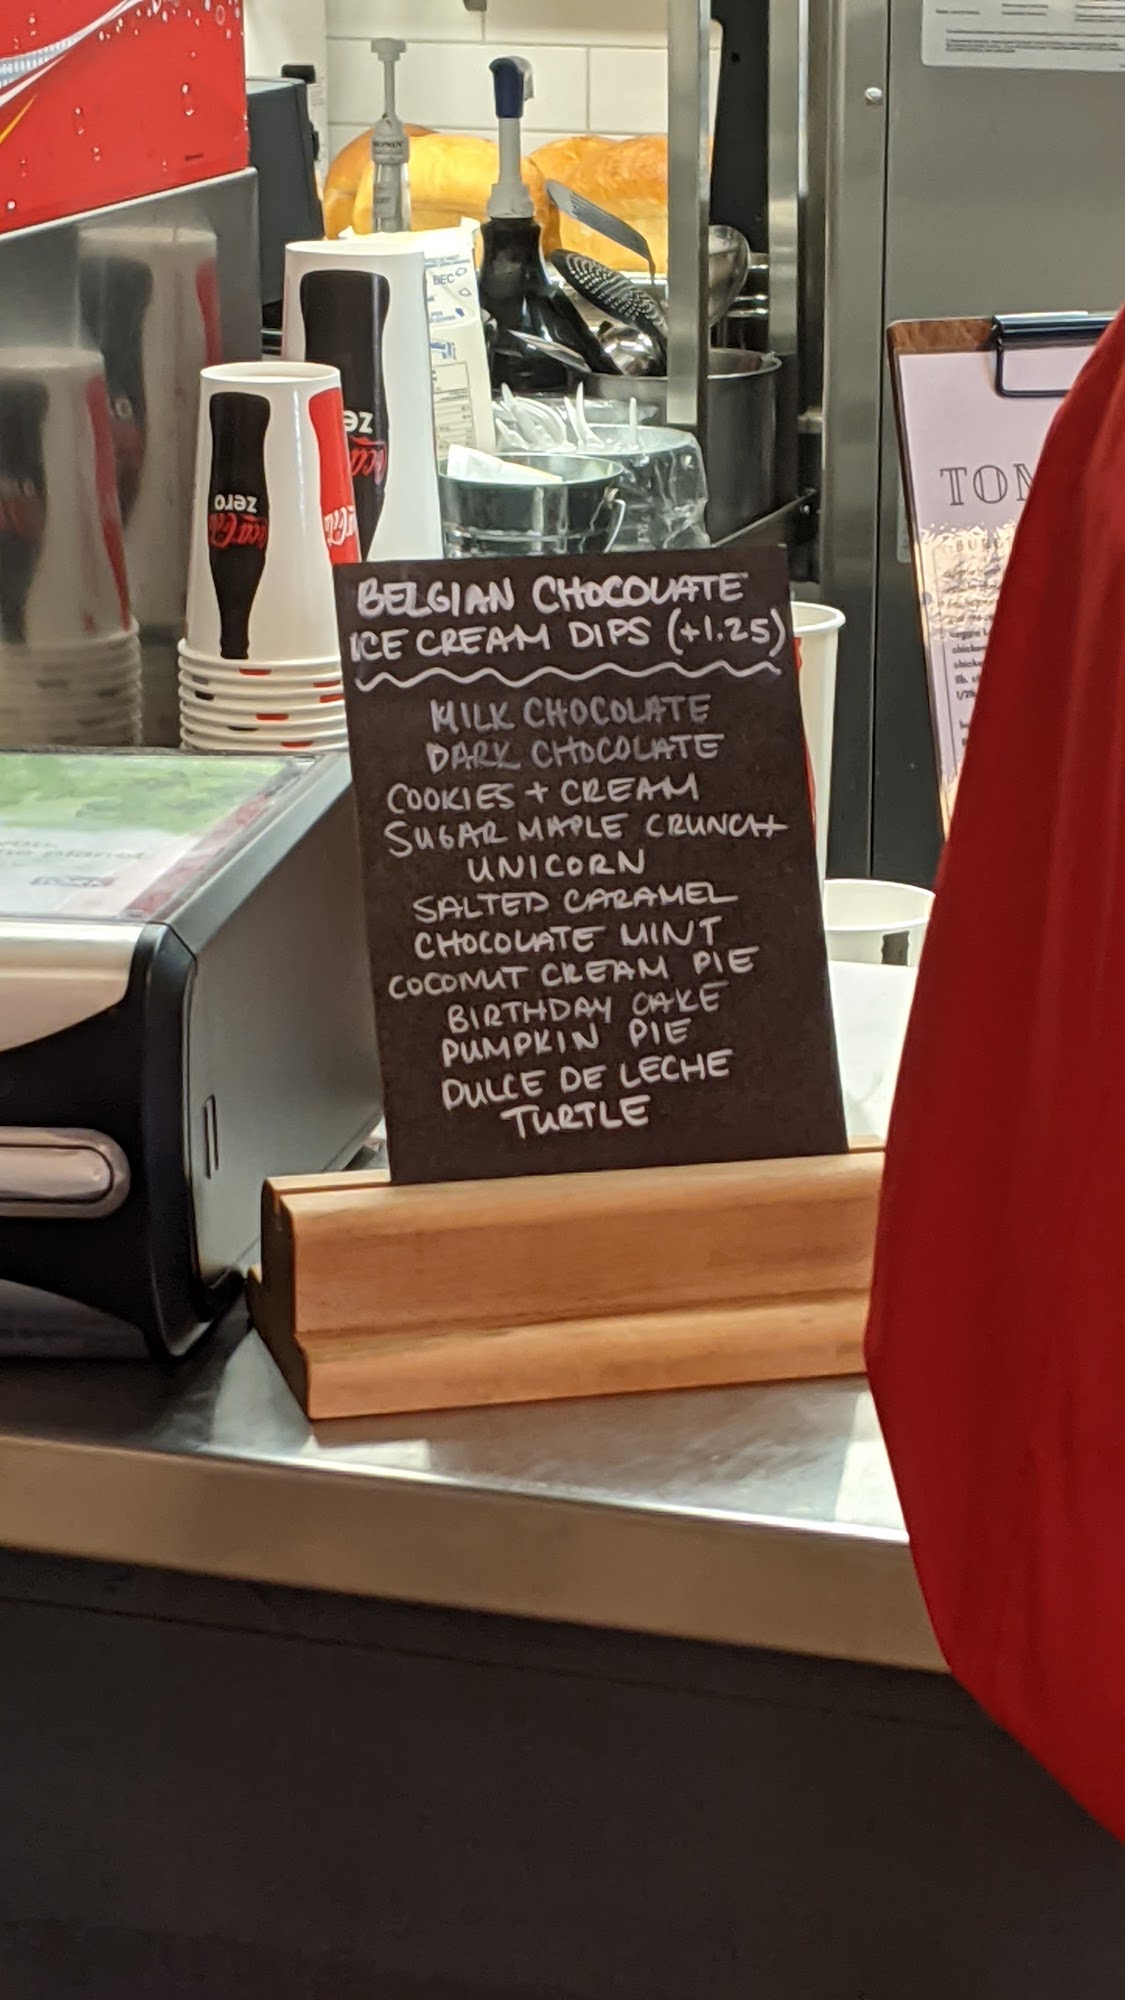 MONIN
BEC
zero
Coca-Cola
zero
Coca-Cola
TOM
BELGIAN CHOCOLATE
ICE CREAM DIPS (+1.25)
MILK CHOCOLATE
DARK CHOCOLATE
COOKIES + CREAM
SUGAR MAPLE CRUNCH
UNICORN
SALTED CARAMEL
CHOCOLATE MINT
COCONUT CREAM PIE
BIRTHDAY CAKE
PUMPKIN PIE
DULCE DE LECHE
TURTLE